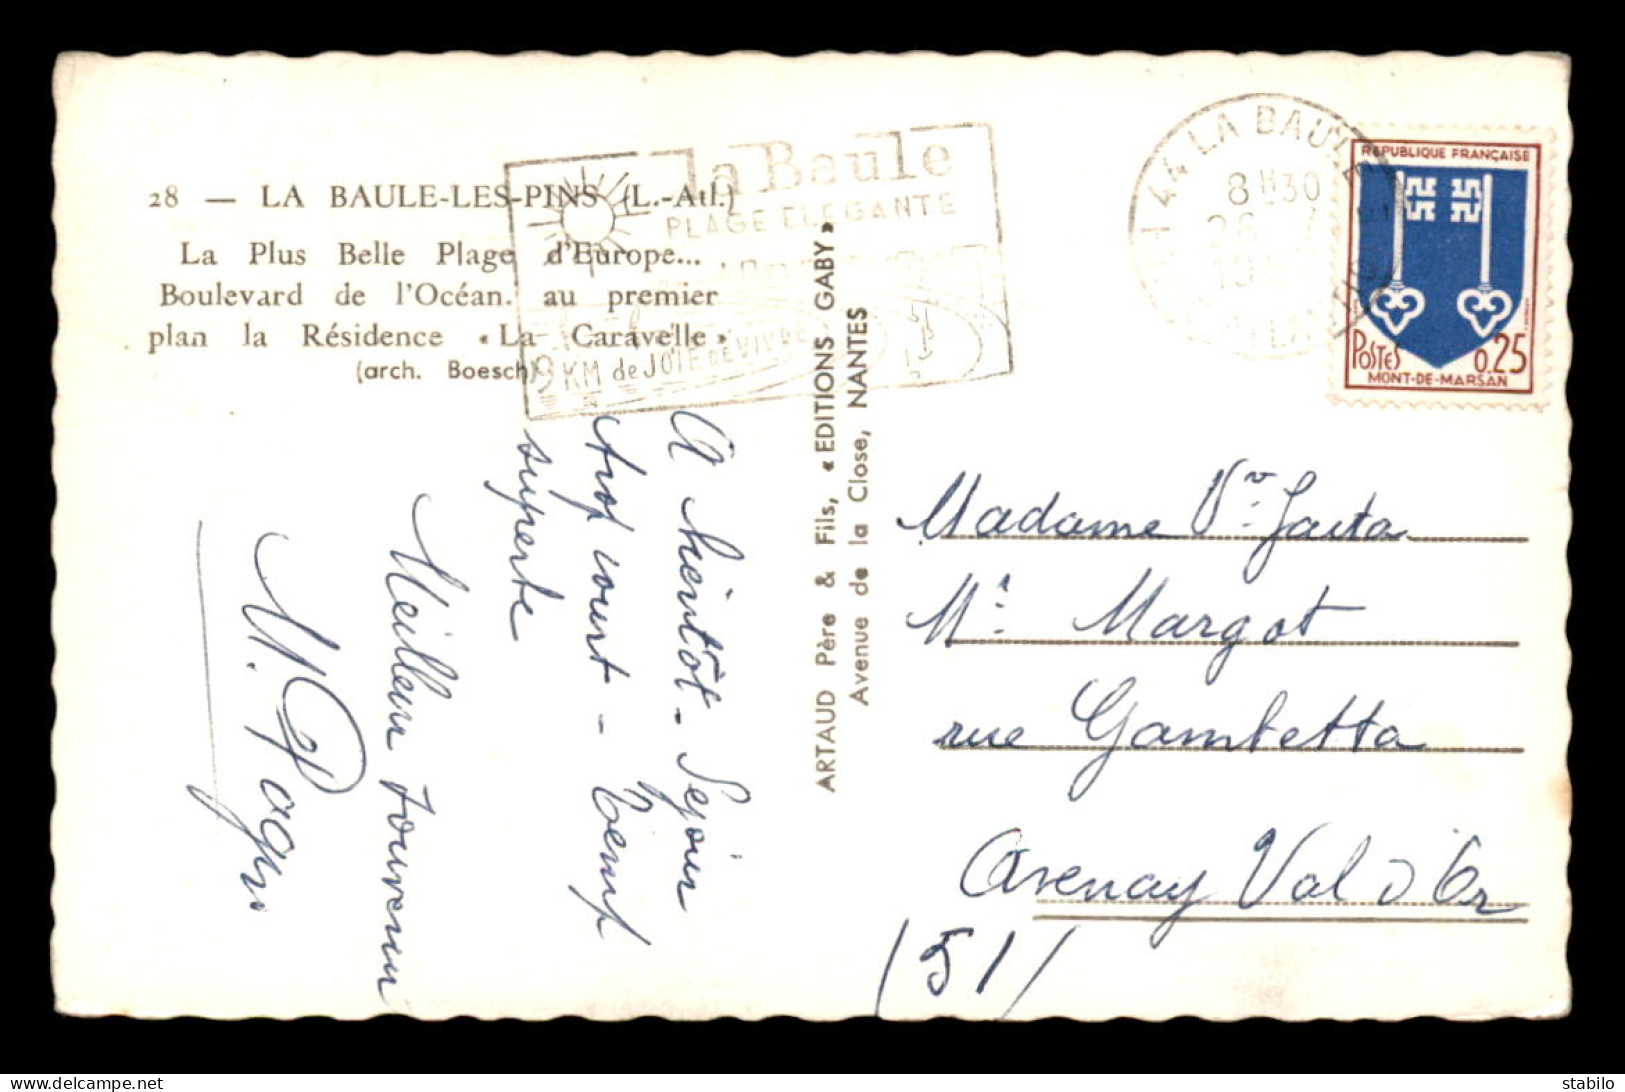 28 — LA BAULE-LES-PINS (L.-Atl.)
La Plus Belle Plage d'Europe...
Boulevard de l'Océan. au premier
plan la Résidence « La Caravelle »
(arch. Boesch)
la Baule
PLAGE ELEGANTE
9 KM de JOIE de VIVRE
44 LA BAULE
8H30
26
19
REPUBLIQUE FRANÇAISE
POSTES 0,25
MONT-DE-MARSAN
ARTAUD Père & Fils, « EDITIONS GABY »
Avenue de la Close, NANTES
A bientôt - Sejour
trop court - Temps
superbe
Meilleur souvenir
M.
Madame Vve
Mr Margot
rue Gambetta
Avenay Val d Or
(51)
stabilo